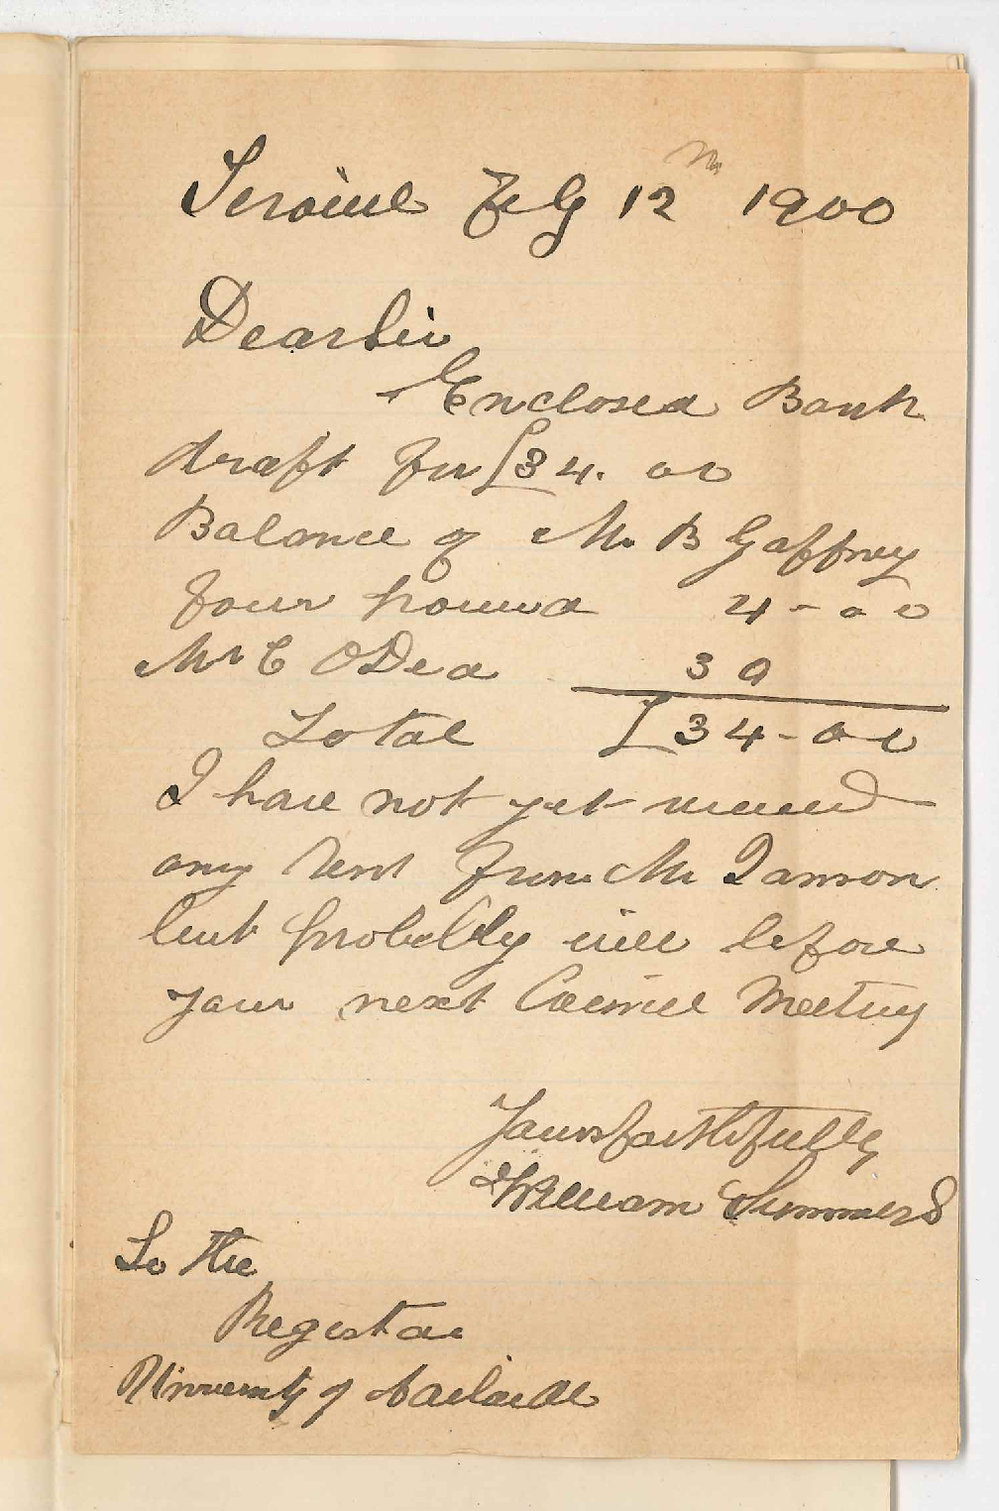 Feby 12th 1900
Dear Sir
Enclosed Bank
draft for £34. 00
Balance of Mr B Gaffney
four pound 4 - 00
Mr C ODea 30
Total £34-00
I have not yet received
any Rent from Mr
but probably will before
your next Council Meeting
Yours faithfully
William Summers
To the
Registar
University of Adelaide